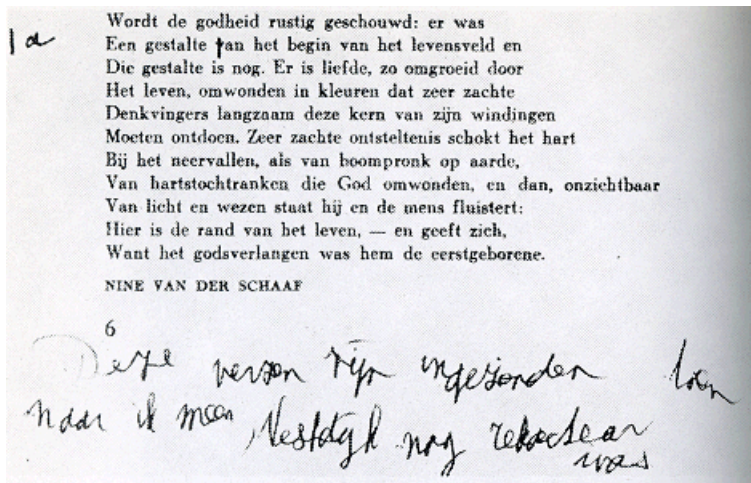 Wordt de godheid rustig geschouwd: er was
1a
Een gestalte aan het begin van het levensveld en
Die gestalte is nog. Er is liefde, zo omgroeid door
Het leven, omwonden in kleuren dat zeer zachte
Denkvingers langzaam deze kern van zijn windingen
Moeten ontdoen. Zeer zachte ontsteltenis schokt het hart
Bij het neervallen, als van boompronk op aarde,
Van hartstochtranken die God omwonden, en dan, onzichtbaar
Van licht en wezen staat hij en de mens fluistert:
Hier is de rand van het leven, — en geeft zich,
Want het godsverlangen was hem de eerstgeborene.
NINE VAN DER SCHAAF
6
Deze verzen zijn ingezonden toen
naar ik meen, Vestdijk nog redacteur
was